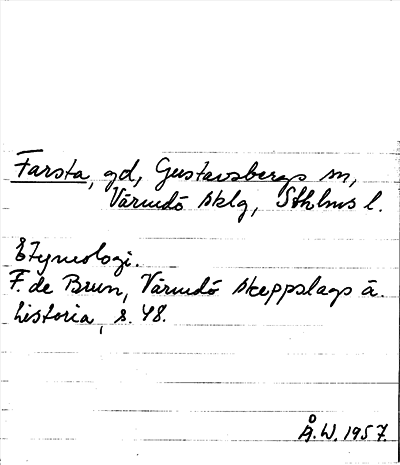 Farsta, gd, Gustavsbergs sn,
Värmdö sklg, Sthlms l.
Etymologi.
F. de Brun, Värmdö skeppslags ä.
historia, s. 48.
Å. W. 1957